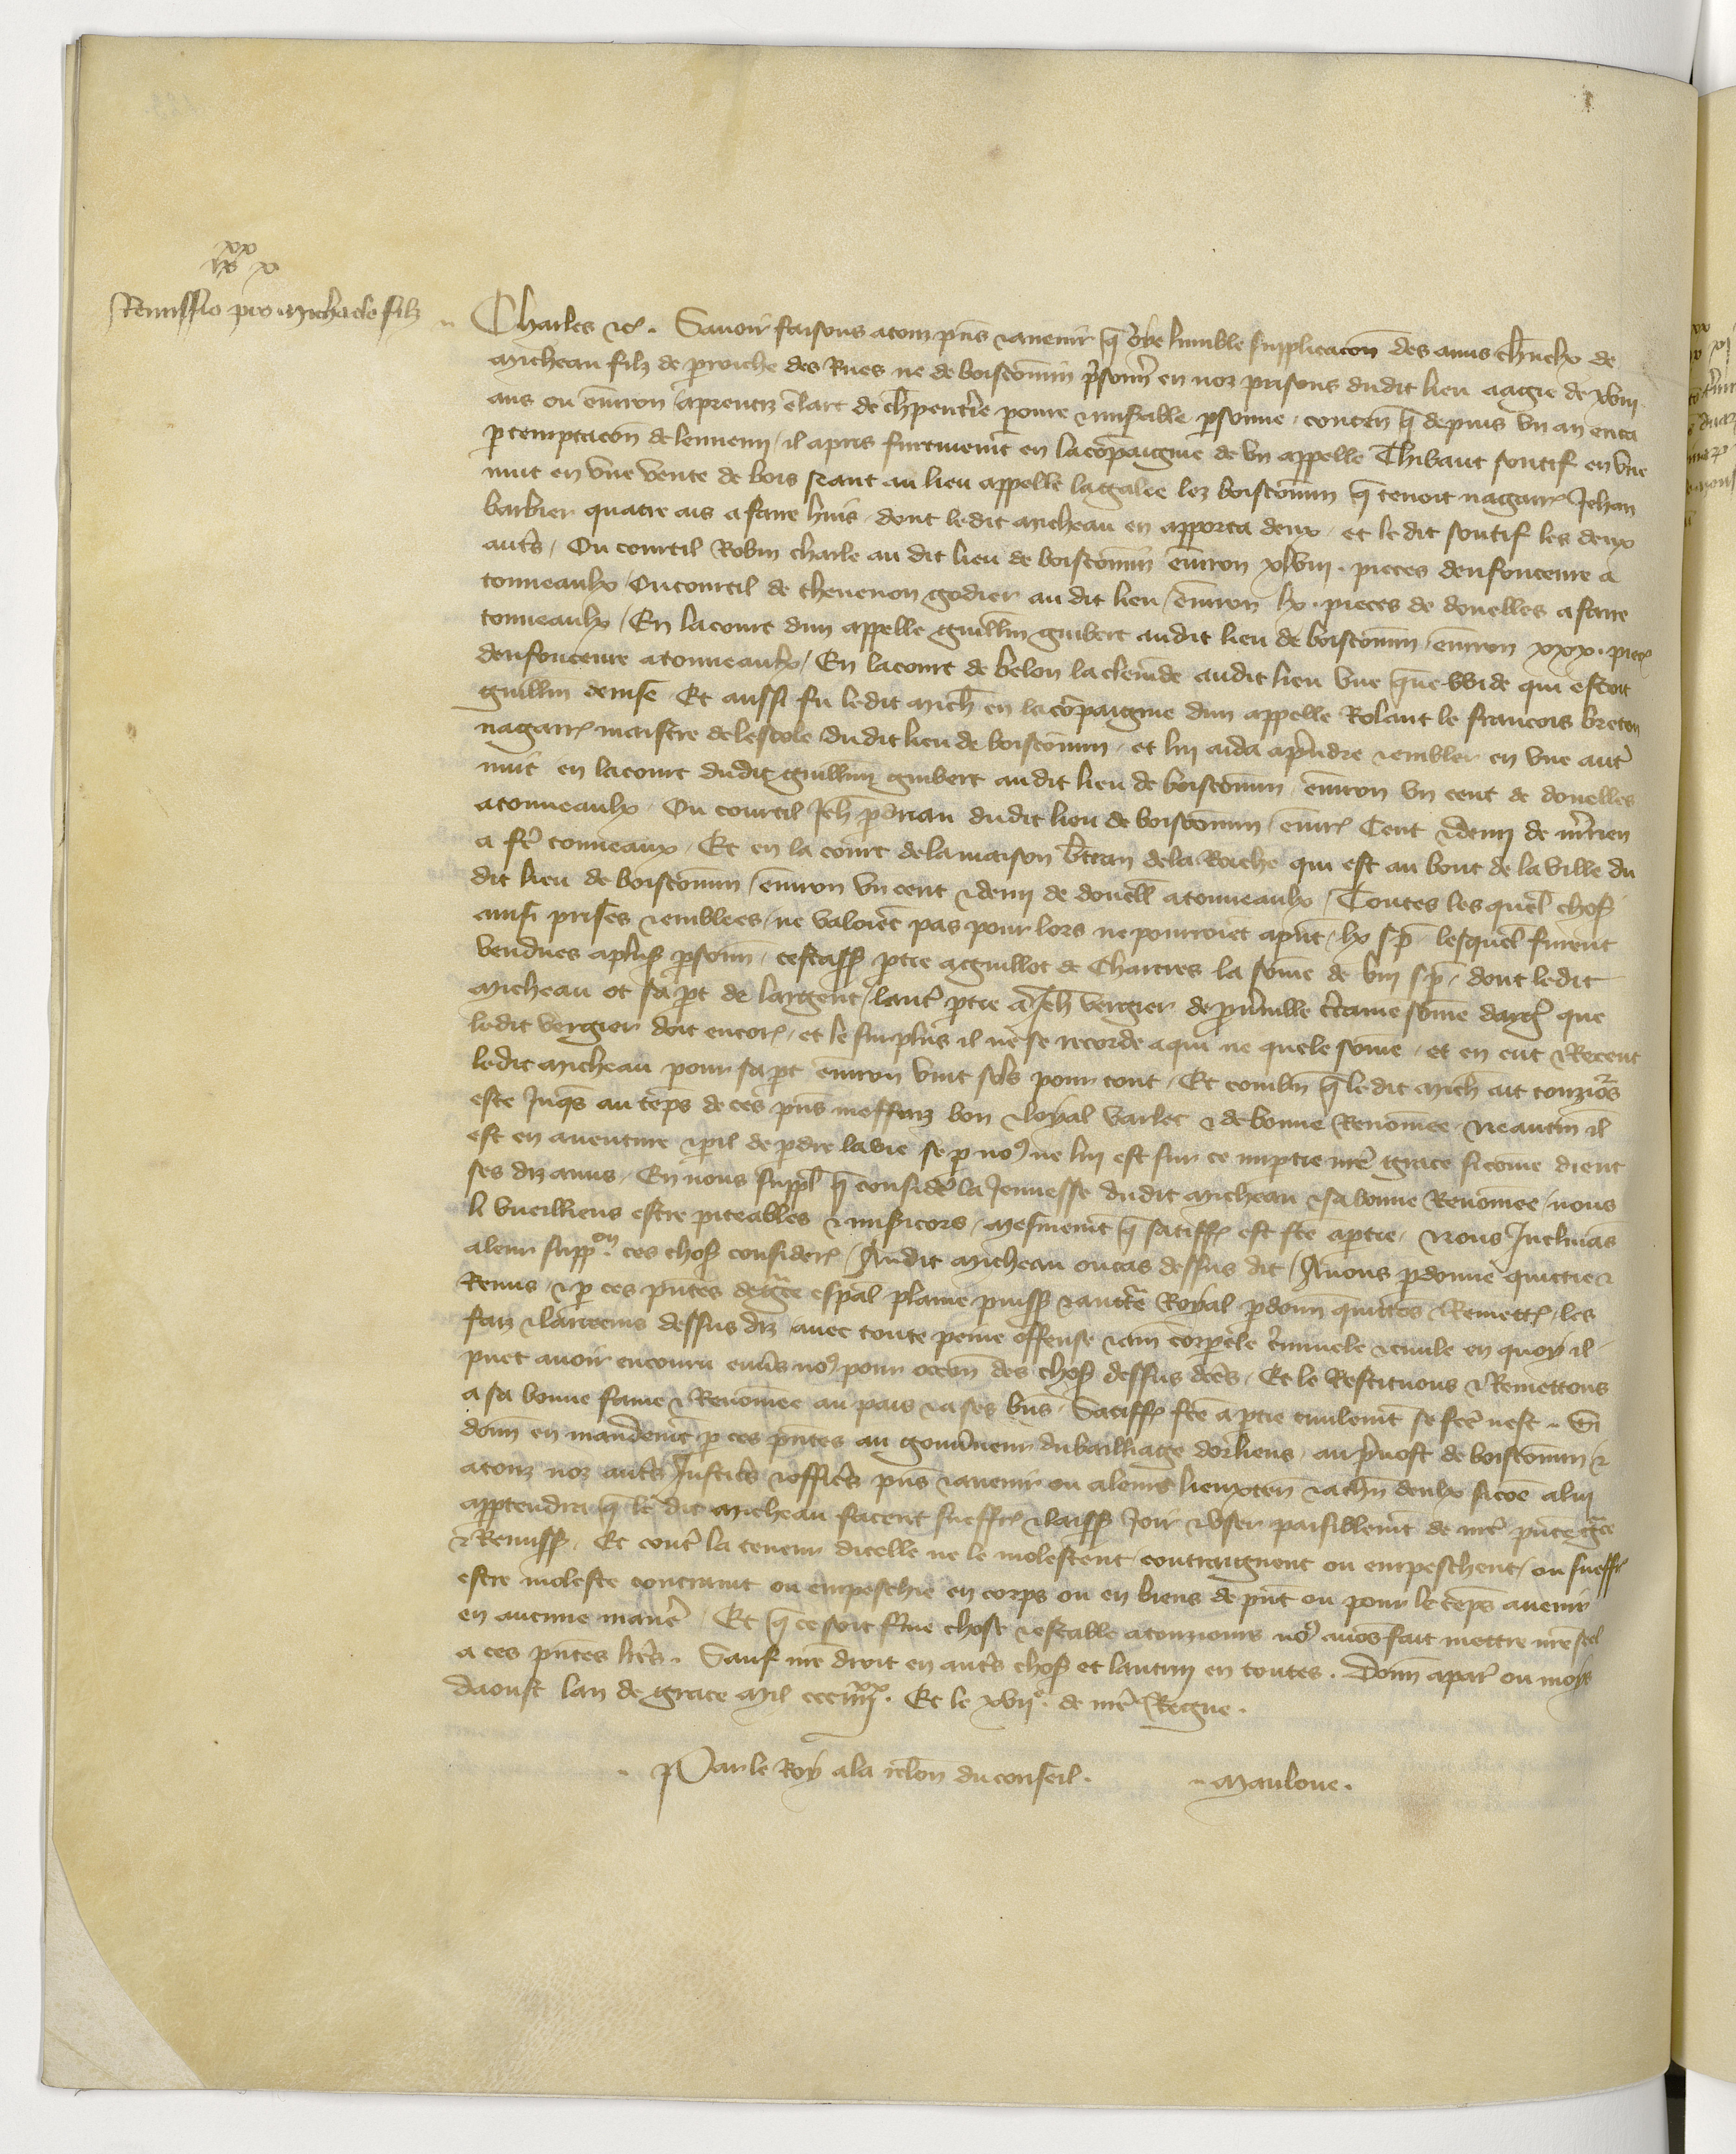 xx
iiii x
Remissio pro Michaele filz
Charles etc. Savoir faisons a touz pns & avenir q oye lumble supplicacon des amis charnelx de
Micheau filz de perroiche des Rues ne de boiscomun prisonn en noz prisons dudit lieu aagie de xviii
ans ou environ aprentiz en lart de chpenterie poure & miserable personne, conten q depuis un an enca
p temptacon de lennemi, il a pris furtivemt en la compaignie de un appelle Thibaut soutif en une
nuit en une vente de bois seant au lieu appelle la galee lez boiscomun q tenoit nagaires Jehan
barbier quatre ais a faire huis, dont ledit Micheau en apporta deux, et le dit soutif les deux
autrs, Ou courtil Robin charle au dit lieu de boiscomun environ xlviii. pieces denfonceure a
tonneaulx, Ou courtil de thevenon godier au dit lieu, environ lx. pieces de douelles a faire
tonneaulx, En la court dun appelle guillin guibert audit lieu de boiscomun, environ xxx. pieces
denfonceure a tonneaulx, En la court de belon la clemde audit lieu une queue wide qui estoit
guillin denise, Et aussi fu ledit Mich en la compaignie dun appelle Rolant le francois breton
nagaires maistre de lescole du dit lieu de boiscomun, et lui aida a prendre & embler en une autre
nuit en la court dudit guillin guibert audit lieu de boiscomun, environ un cent de douelles
a tonneaulx, Ou courtil Jeh dudit lieu de boiscomun, environ Cent & demi de merrien
a fe tonneaux, Et en la court de la maison btran de la Roiche qui est au bout de la ville du
dit lieu de boiscomun, environ un cent & demi de douell a tonneaulx, Toutes les quelx choses
ainsi prises & emblees, ne valoiet pas pour lors ne pourroiet a pnt, lx s p lesquelx furent
vendues a plus personn, cestass ptie a guillot de Chartres la some de viii s p, dont ledit
Micheau ot sa pt de largent, lautre ptie a Jeh vergier de certaine some darg que
ledit vergier doit encores, et le surplus il ne se recorde a qui ne quele some, et en eut & Receut
ledit Micheau pour sa pt environ vint sols pour tout, Et combn q ledit Mich ait touziours
este Juqs au temps de ces pns meffaiz bon & loyal varlet & de bonne Renommee, Neantm il
est en aventure & pil de pdre la vie se p no9 ne lui est sur ce imptie nre grace sicome dient
ses diz amis, En nous suppl q considere la Jeunesse dudit Micheau & sa bonne Renomee, nous
li vueilliens estre piteables & misicors, mesmemt q satisff est fte a ptie, Nous Inclinas
a leur supp on ces choses consideres, Audit Micheau ou cas dessus dit, Avons pdonne quictie &
Remis, & p ces pntes de gre espal plaine puiss & auctte Royal pdonn quittos & Remetts, les
faiz & larrecins dessus diz avec toute peine offense & am corpele criminele & civile en quoy il
puet avoir encouru envs no9 pour occon des choses dessus dcs, Et le Restituons & Remettons
a sa bonne fame & Renommee au pais & a ses bns, Satisff fte a ptie civilemt se fte nest. Si
donn en mandemt p ces pntes au gouvneur du bailliage dorliens, au pvost de boiscomun &
a touz noz autrs Justics & offics pns & avenir ou a leurs lieuxten & a chn deulx sicoe a lui
apptendra q le dit Micheau facent sueffrs & laiss Joir & user paisiblemt de nre pnte gce
& Remiss, Et contre la teneur dicelle ne le molestent, contraignent ou empeschent, ou sueffr
estre moleste contraint ou empeschie en corps ou en biens de pnt ou pour le temps avenir
en aucune maniere, Et q ce soit ferme chose & estable a touziours no9 avos fait mettre nre seel
a ces pntes lrs. Sauf nre droit en autrs choses et lautruy en toutes. Donn a par ou moys
daoust lan de grace Mil ccciiiixx. Et le xviie. de nre Regne.
Par le Roy a la relon du conseil. Mauloue.